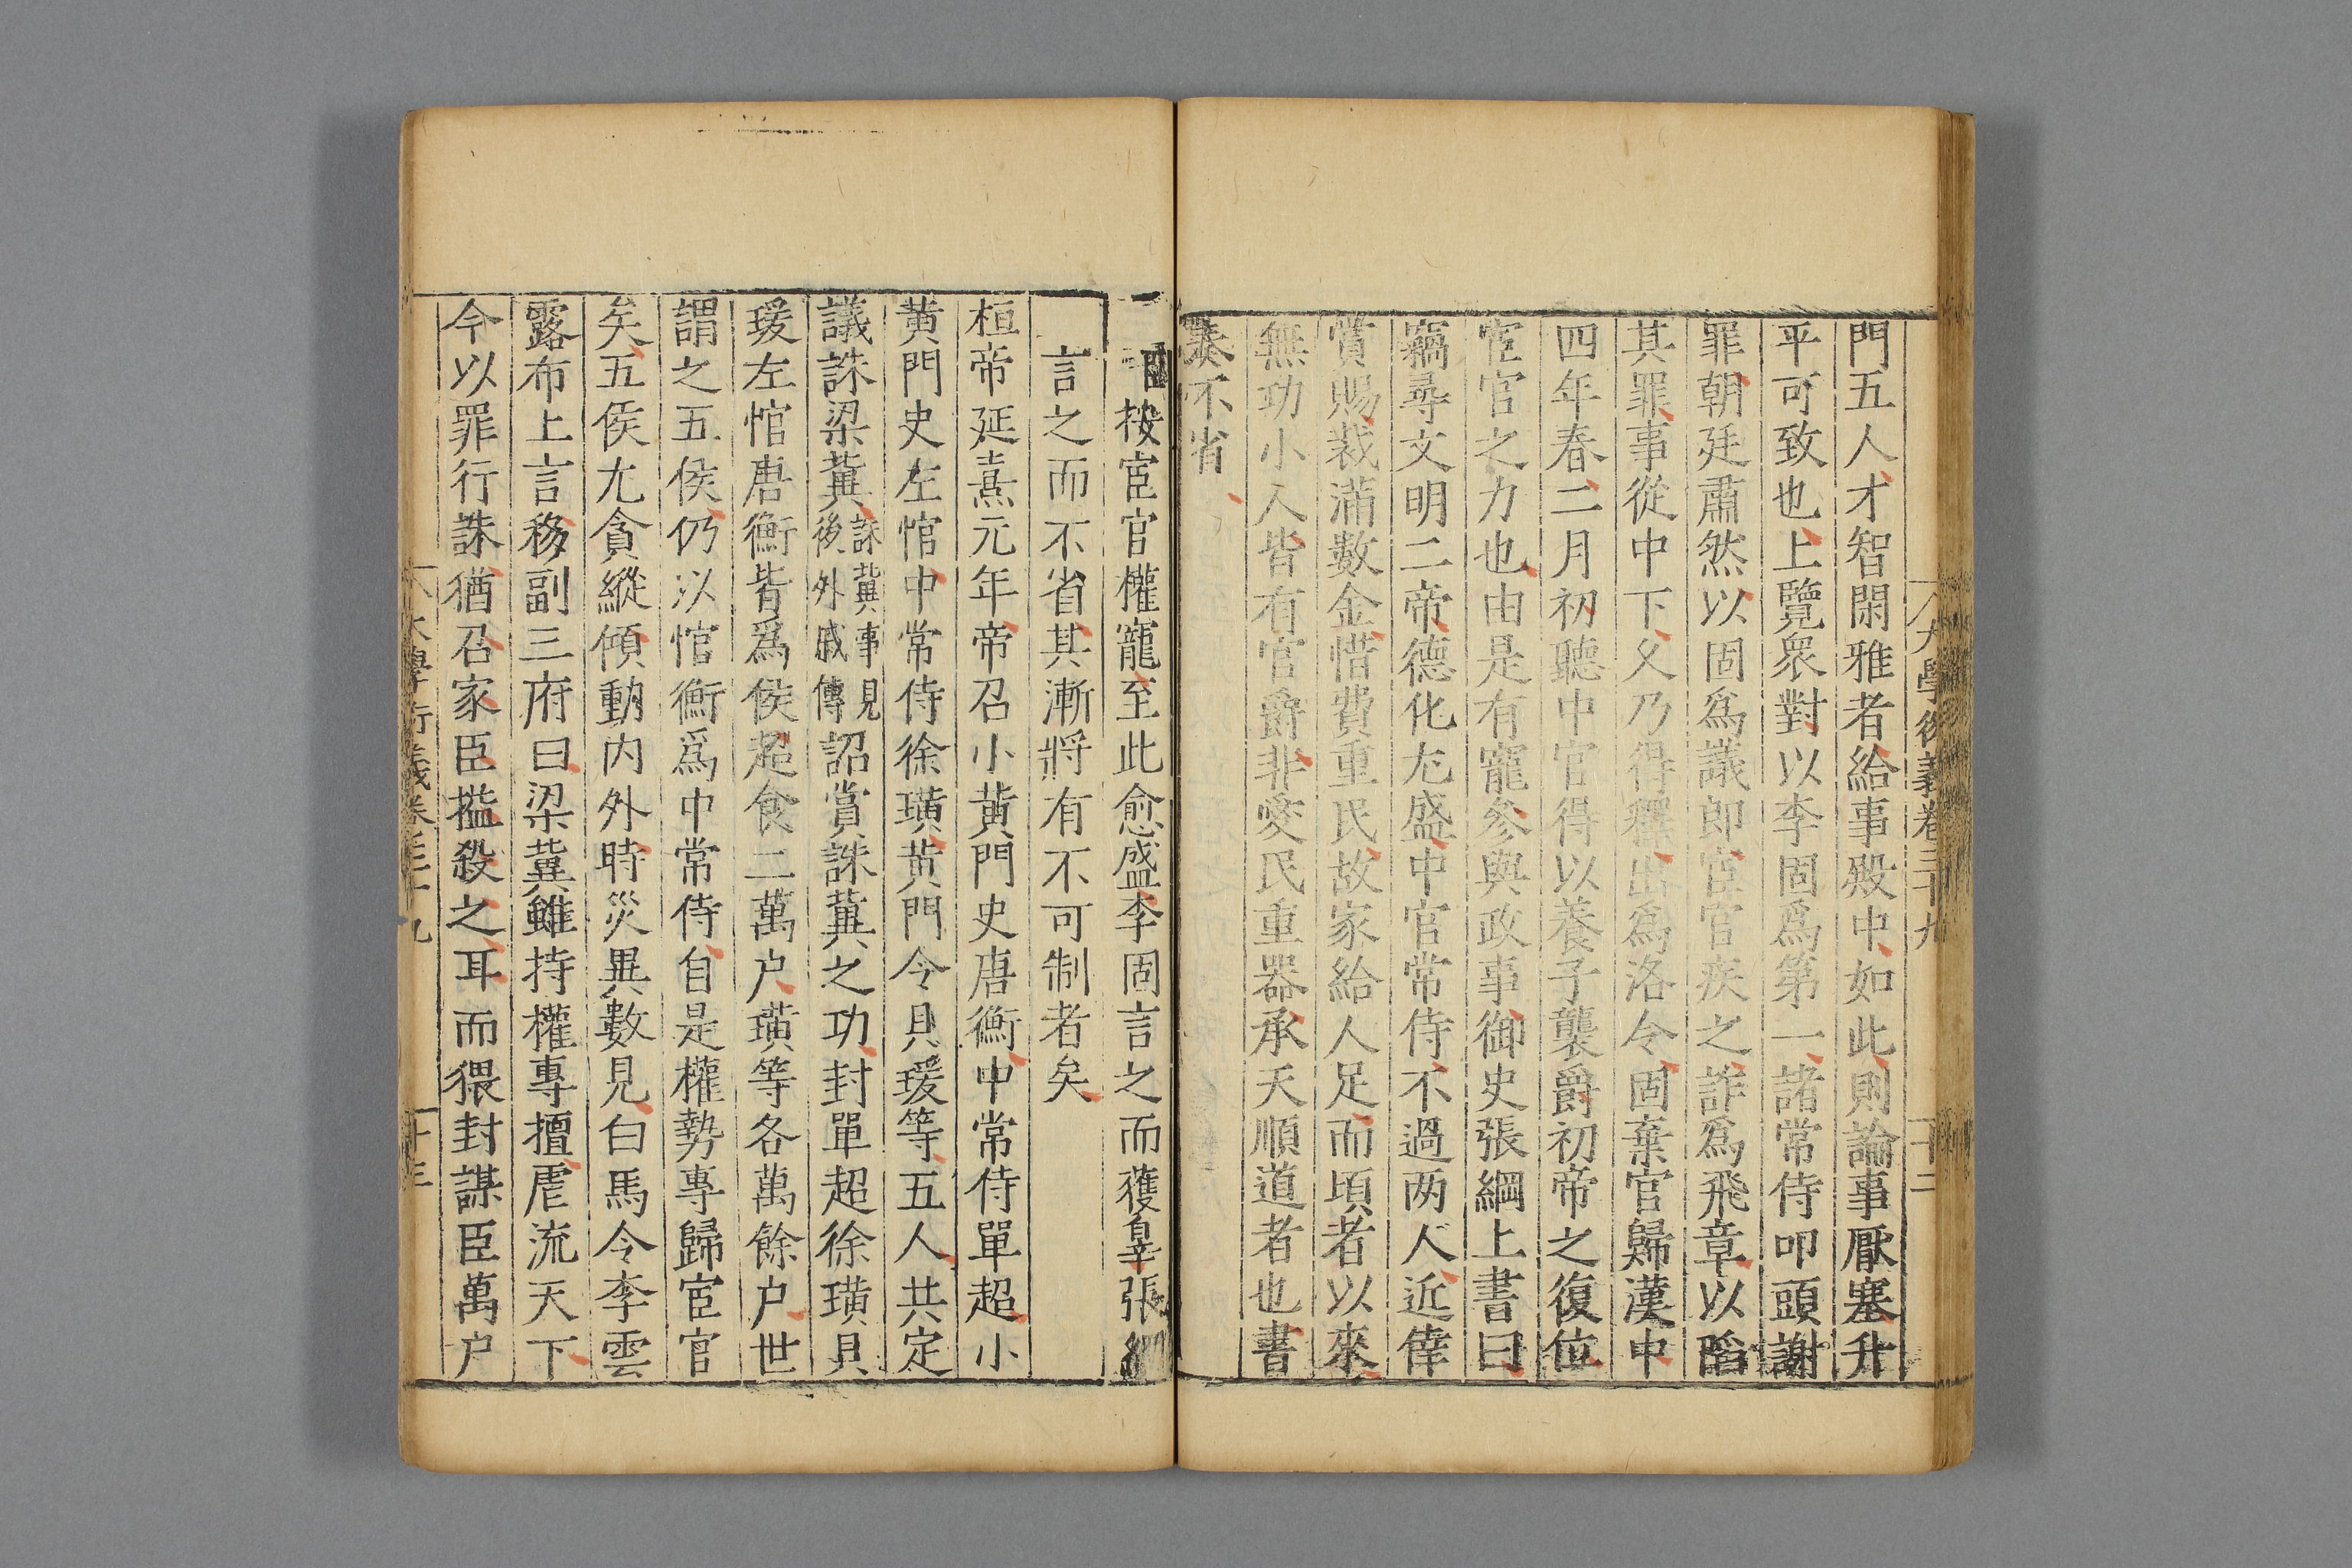 門五人才智閑雅者給事殿中如此則論事厭塞升
平可致也上覽衆對以李固爲第一諸常侍叩頭謝
罪朝廷肅然以固爲議郎宦官疾之詐爲飛章以陷
其罪事從中下乆乃得釋出爲洛令固棄官歸漢中
四年春二月初聽中官得以養子襲爵初帝之復位
宦官之力也由是有寵參與政事御史張綱上書曰
竊尋文明二帝德化尤盛中官常侍不過两人近倖
賞賜裁滿數金惜費重民故家給人足而頃者以來
無功小人皆有官爵非愛民重器承天順道者也書
奏不省
臣按宦官權寵至此愈盛李固言之而獲辠張綱
言之而不省其漸將有不可制者矣
桓帝延熹元年帝召小黃門史唐衡中常侍單超小
黃門史左悺中常侍徐璜黃門令具瑗等五人共定
議誅梁冀誅冀事見後外戚傳詔賞誅冀之功封單超徐璜具
瑗左悺唐衡皆爲侯超食二萬户璜等各萬餘户世
謂之五侯仍以悺衡爲中常侍自是權勢專歸宦官
矣五侯尤貪縱傾動内外時災異數見白馬令李雲
露布上言移副三府曰梁冀雖持權專擅虐流天下
今以罪行誅猶召家臣搤殺之耳而猥封謀臣萬户
大學衍義卷三十九
十三